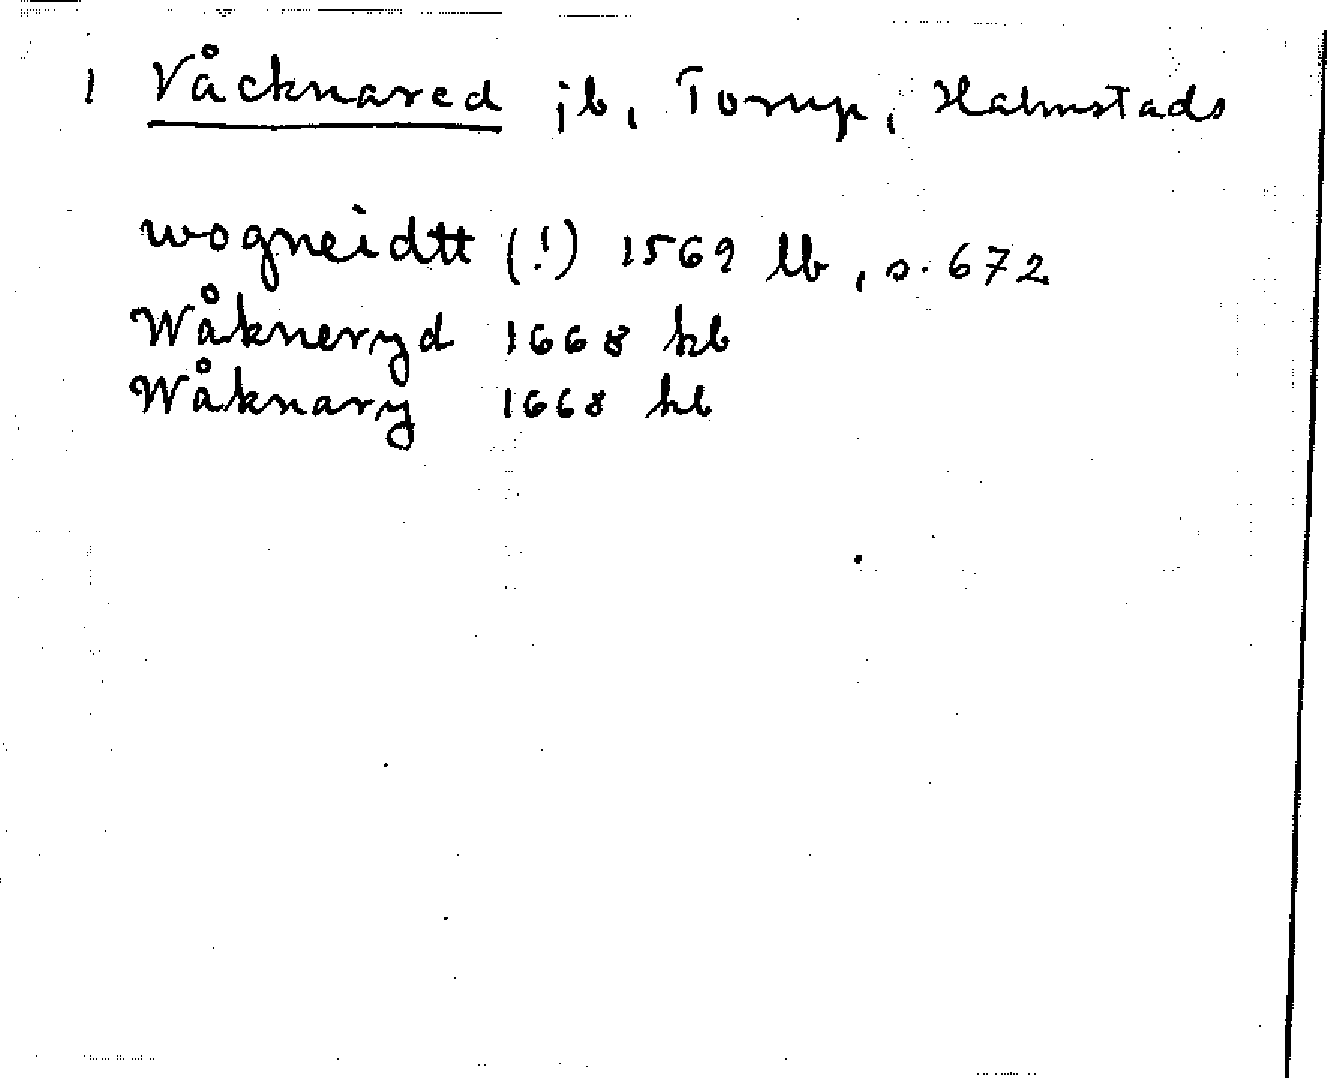 1 Våcknared jb, Torup, Halmstads
wogneidtt (!) 1569 lb, s. 672
Wåkneryd 1668 kb
Wåknary 1668 kb